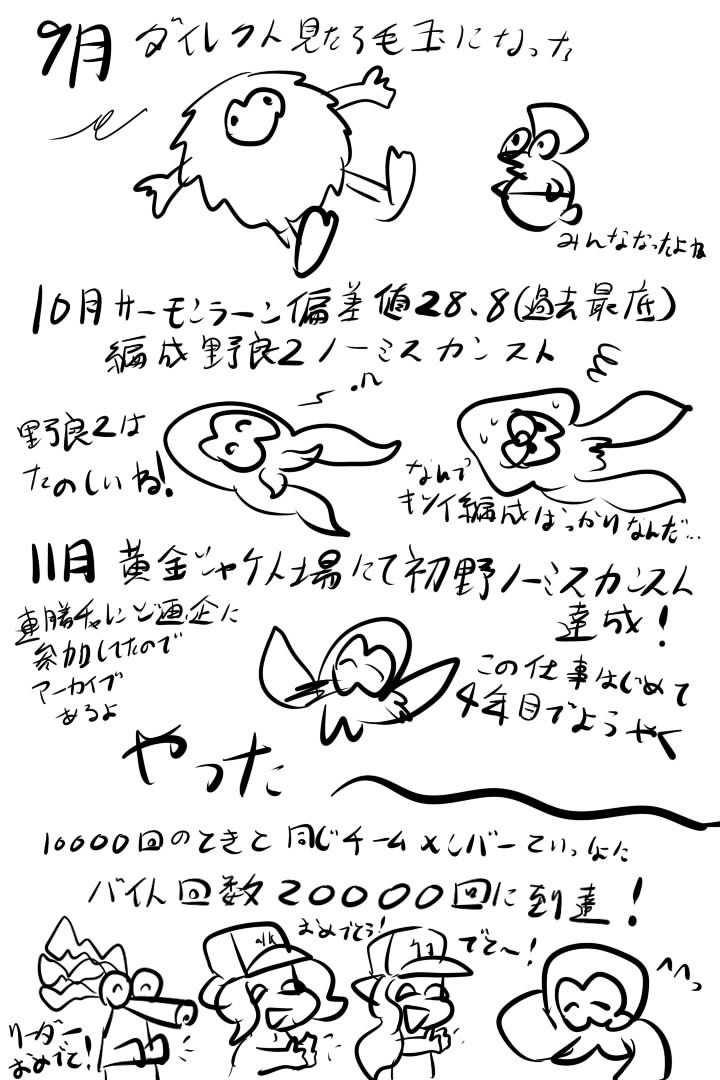 9月 ダイレクト見たら毛玉になった
みんななったよね
10月 サーモンラーン偏差値28.8(過去最底)
編成野良2ノーミスカンスト
野良2は
たのしいね!
なんで
キツイ編成ばっかりなんだ…
11月 黄金シャケト場にて初野ノーミスカンスト
達成!
車勝チャレンジ企画に
参加してたので
アーカイブ
あるよ
この仕事はじめて
4年目でようやく
やった
10000回のときと同じチームメンバーでいっしょに
バイト回数20000回に到達!
おめでとう!
でと〜!
リーダー
おめでて!
^^っ